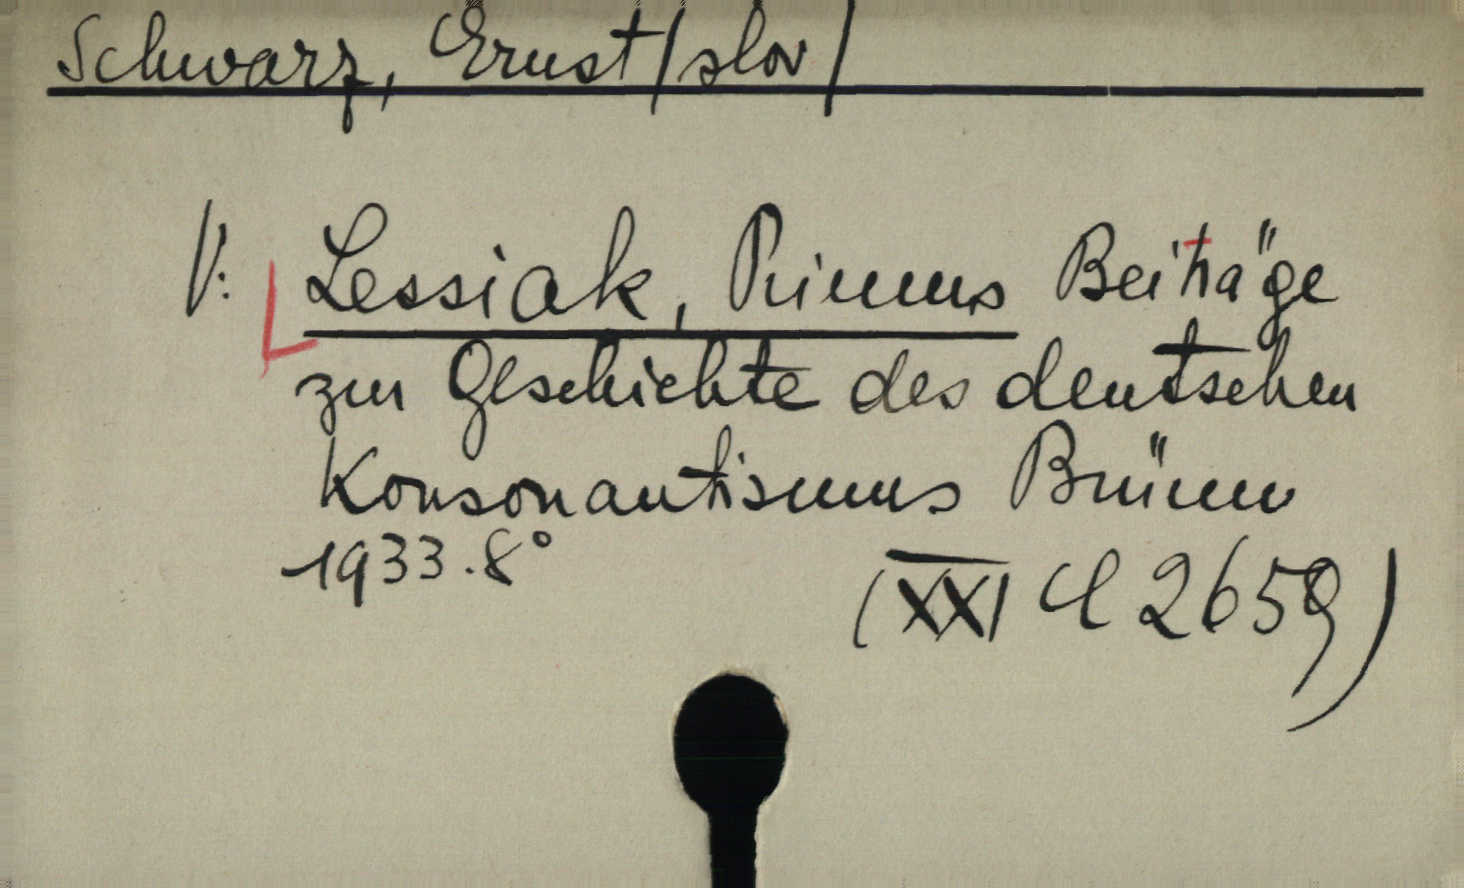 Schwarz, Ernst /slov/
V: Lessiak, Primus Beiträge
zur Geschichte des deutschen
Konsonantismus Brünn
1933.8°
(XXI C 2659)